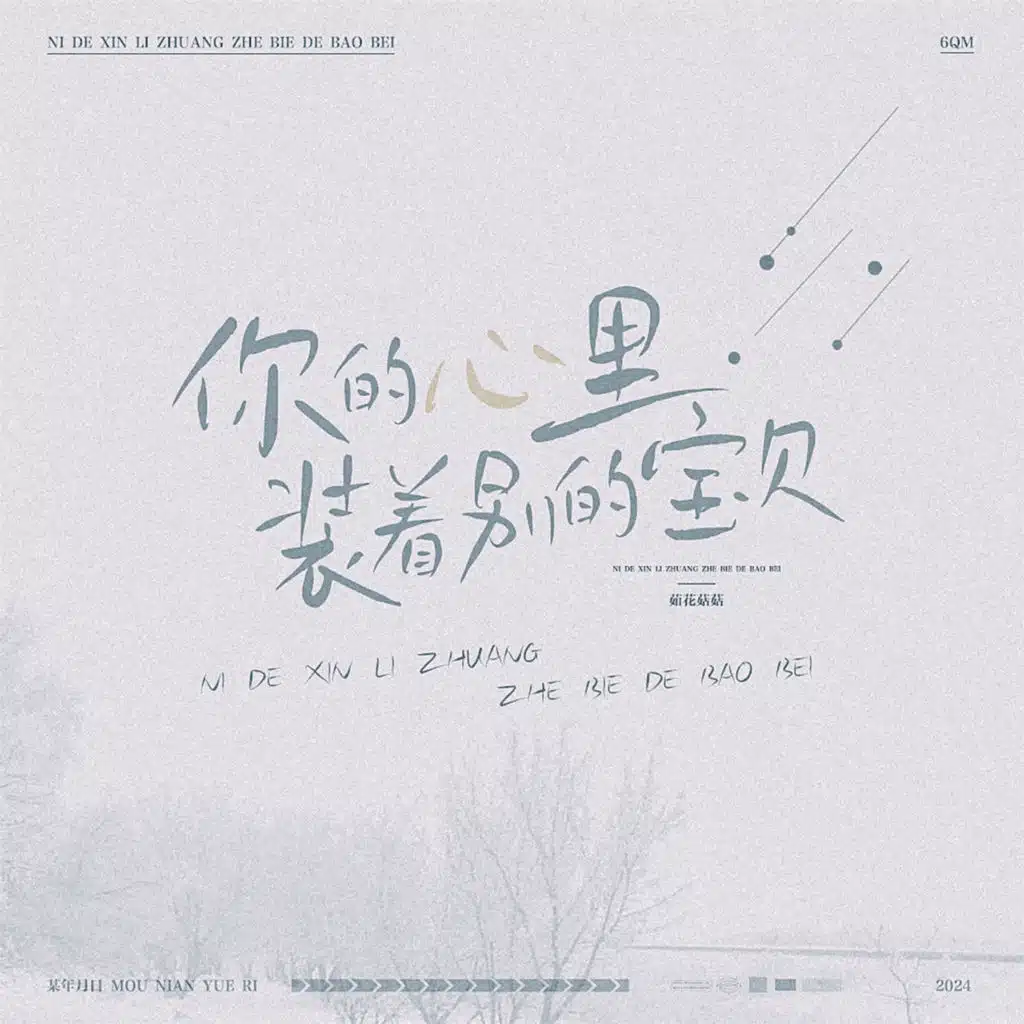 NI DE XIN LI ZHUANG ZHE BIE DE BAO BEI
6QM
你的心里
装着别的宝贝
NI DE XIN LI ZHUANG ZHE BIE DE BAO BEI
茹花菇菇
NI DE XIN LI ZHUANG
ZHE BIE DE BAO BEI
某年月日 MOU NIAN YUE RI
2024